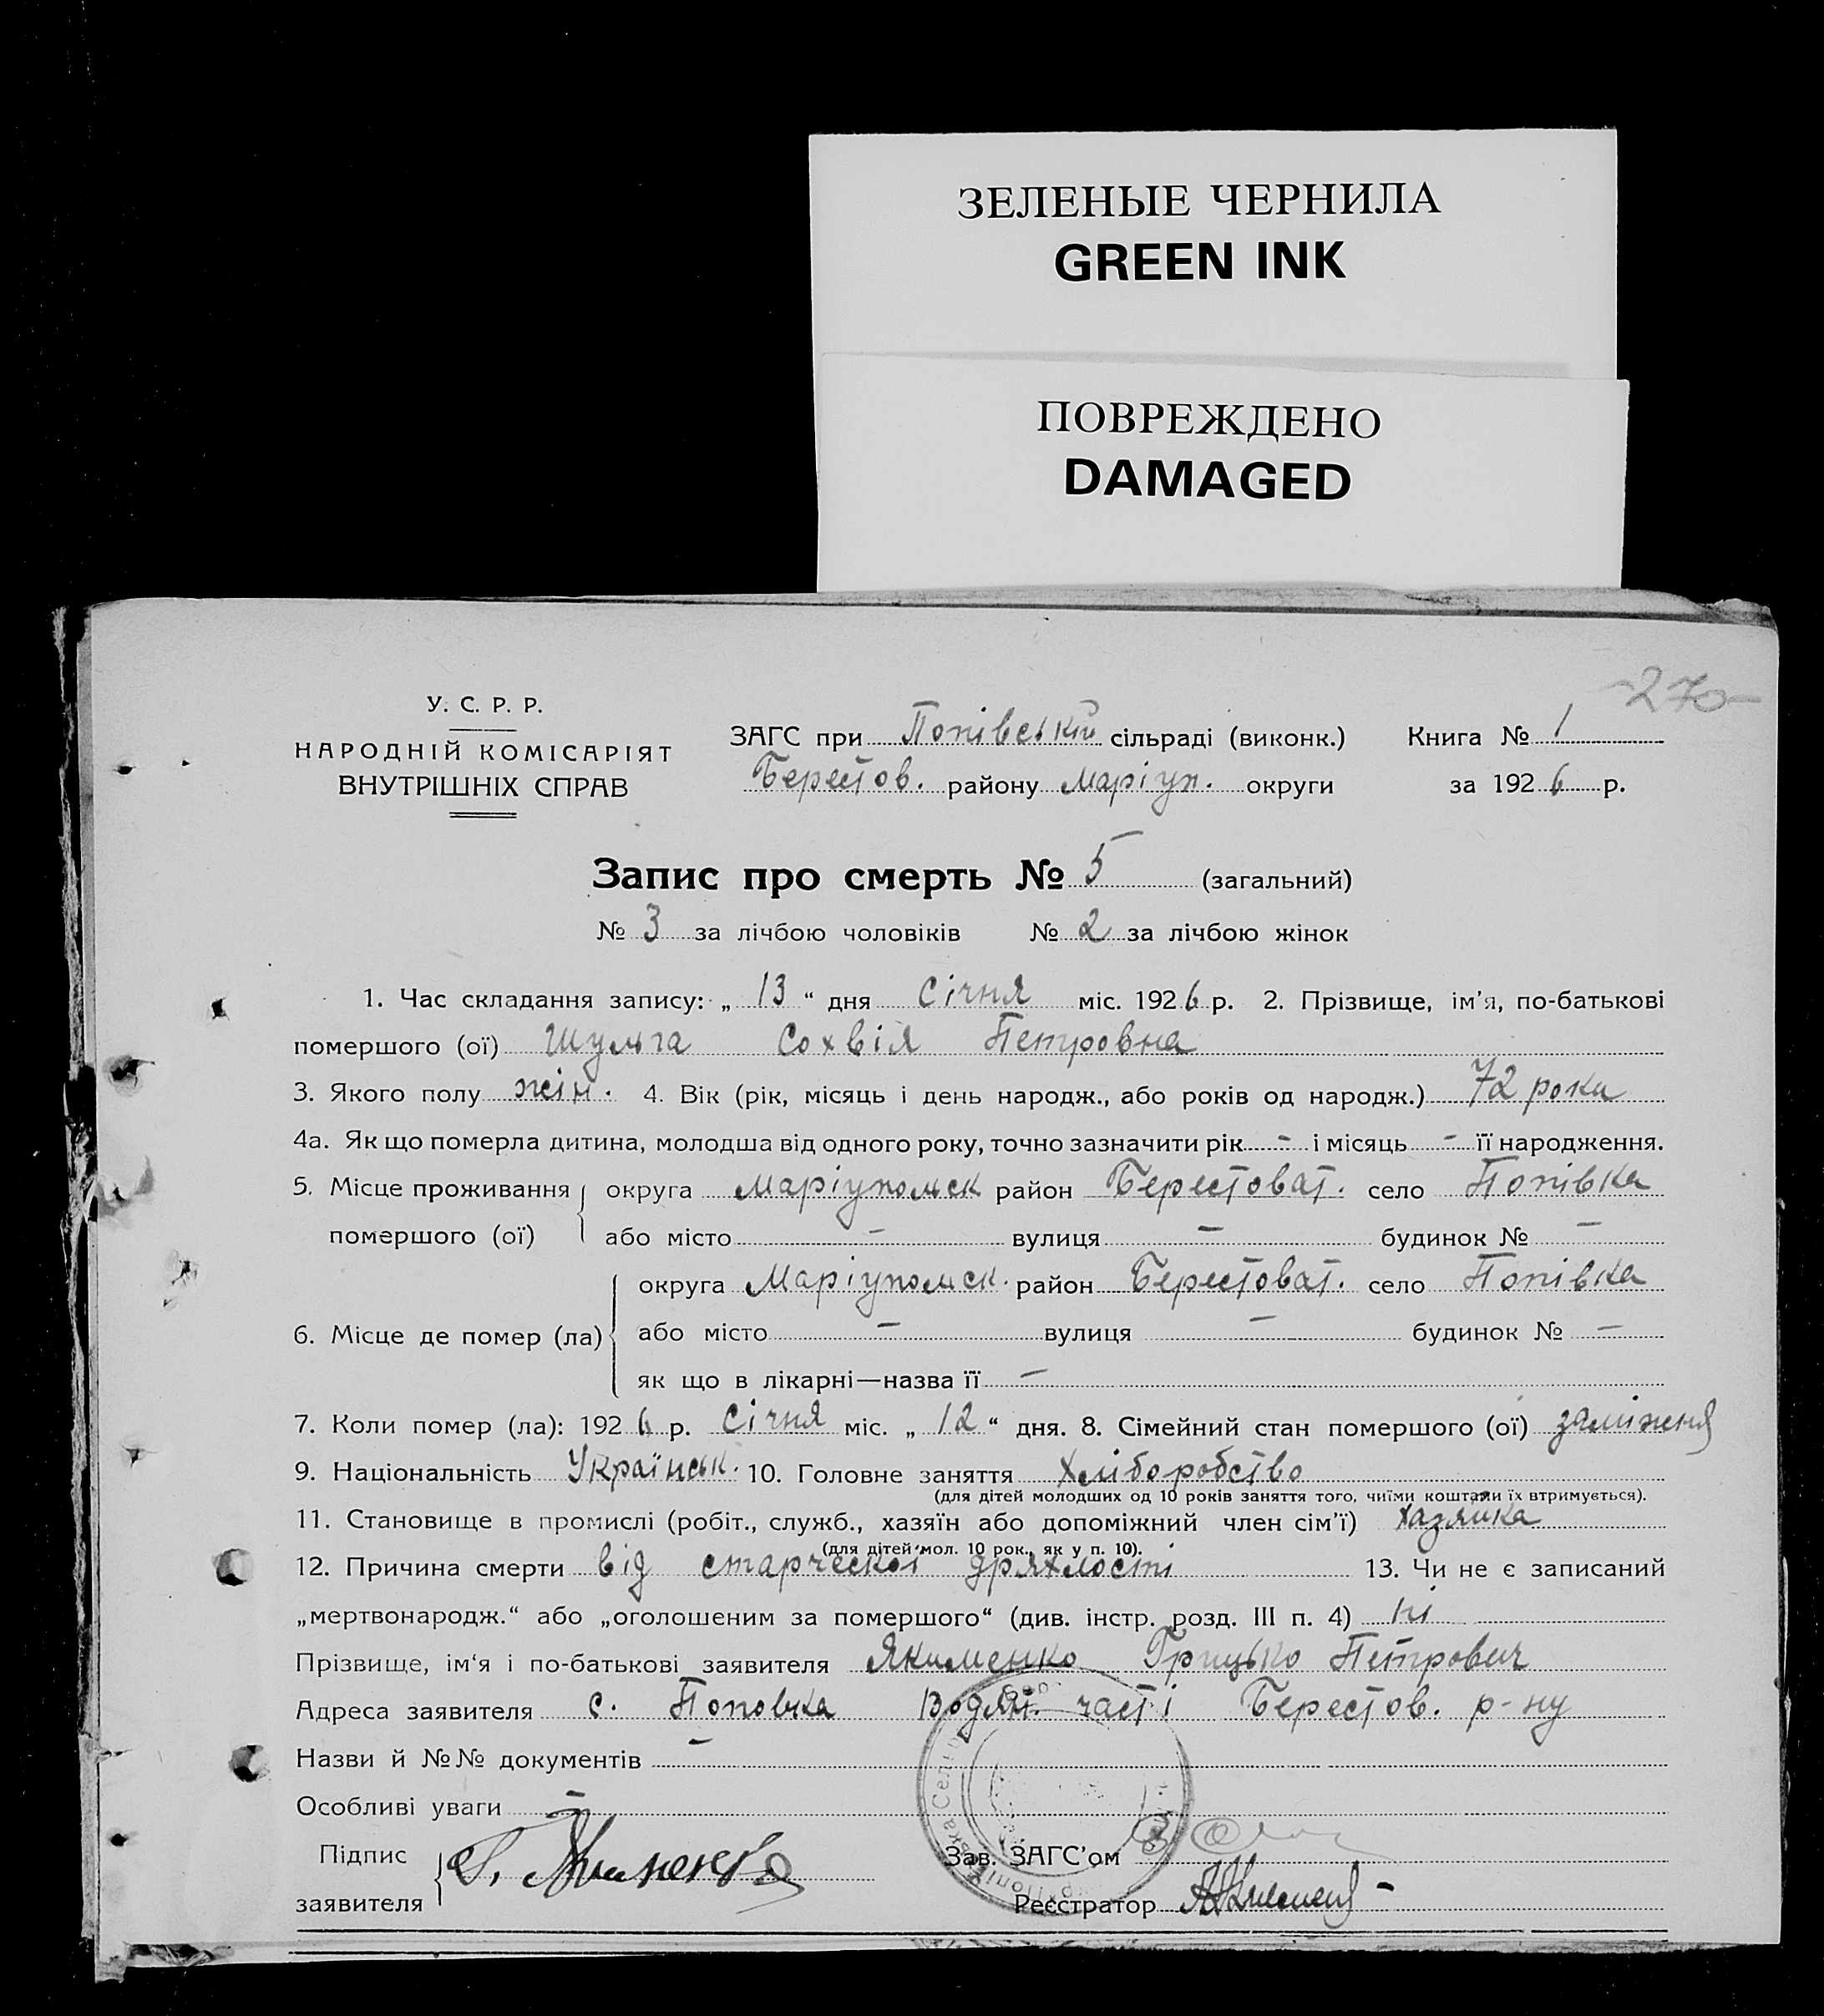 ЗЕЛЕНЫЕ ЧЕРНИЛА
GREEN INK
ПОВРЕЖДЕНО
DAMAGED
-270-
У. С. Р. Р.
НАРОДНІЙ КОМІСАРІЯТ
ВНУТРІШНІХ СПРАВ
ЗАГС при Попівській сільраді (виконк.) Книга № 1
Берестов. району Маріуп. округи за 1926 р.
Запис про смерть № 5 (загальний)
№ 3 за лічбою чоловіків № 2 за лічбою жінок
1. Час складання запису: „ 13 “ дня Січня міс. 1926 р. 2. Прізвище, ім'я, по-батькові
помершого (ої) Шульга Сохвія Петровна
3. Якого полу жін. 4. Вік (рік, місяць і день народж., або років од народж.) 72 рока
4а. Як що померла дитина, молодша від одного року, точно зазначити рік - і місяць - її народження.
5. Місце проживання округа Маріупольск район Берестоват. село Попівка
помершого (ої) або місто - вулиця - будинок № -
округа Маріупольск. район Берестоват. село Попівка
6. Місце де помер (ла) або місто - вулиця - будинок № -
як що в лікарні—назва її -
7. Коли помер (ла): 1926 р. Січня міс. „ 12 “ дня. 8. Сімейний стан помершого (ої) заміжня
9. Національність Українськ. 10. Головне заняття Хліборобство
(для дітей молодших од 10 років заняття того, чиїми коштами їх втримується).
11. Становище в промислі (робіт., служб., хазяїн або допоміжний член сім'ї) Хазяйка
(для дітей мол. 10 рок., як у п. 10).
12. Причина смерти від старческої дряхлості 13. Чи не є записаний
„мертвонародж.“ або „оголошеним за помершого“ (див. інстр. розд. III п. 4) ні
Прізвище, ім'я і по-батькові заявителя Якименко Грицько Петрович
Адреса заявителя с. Поповка Водян. часті Берестов. р-ну
Назви й №№ документів -
Особливі уваги -
Підпис Г. Якименко Зав. ЗАГС'ом
заявителя Реєстратор